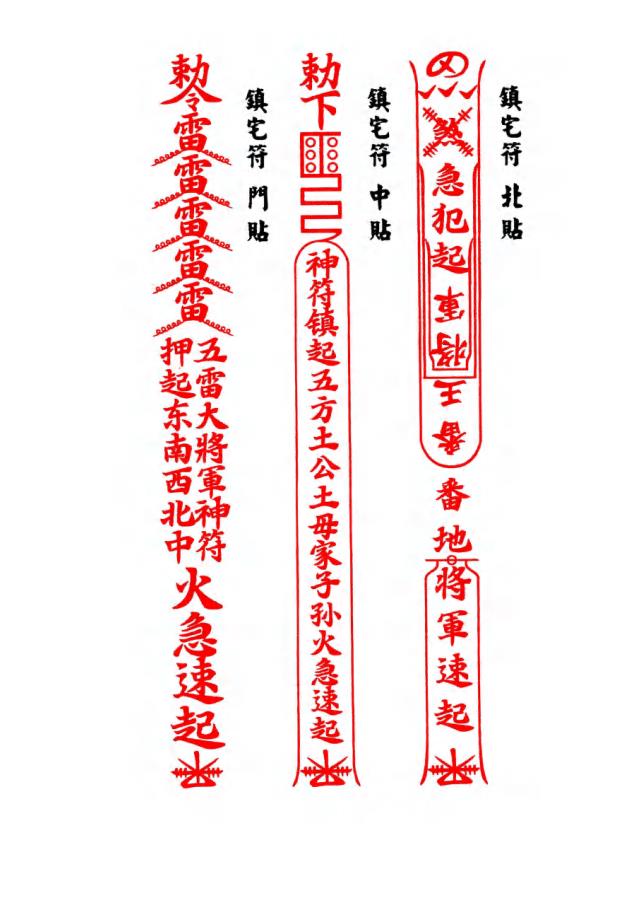 鎮宅符 北貼
煞急犯起軍將王番番地將軍速起
鎮宅符 中貼
勅下神符镇起五方土公土母家子孙火急速起
鎮宅符 門貼
勅令雷雷雷雷雷
五雷大將軍神符
押起东南西北中
火急速起